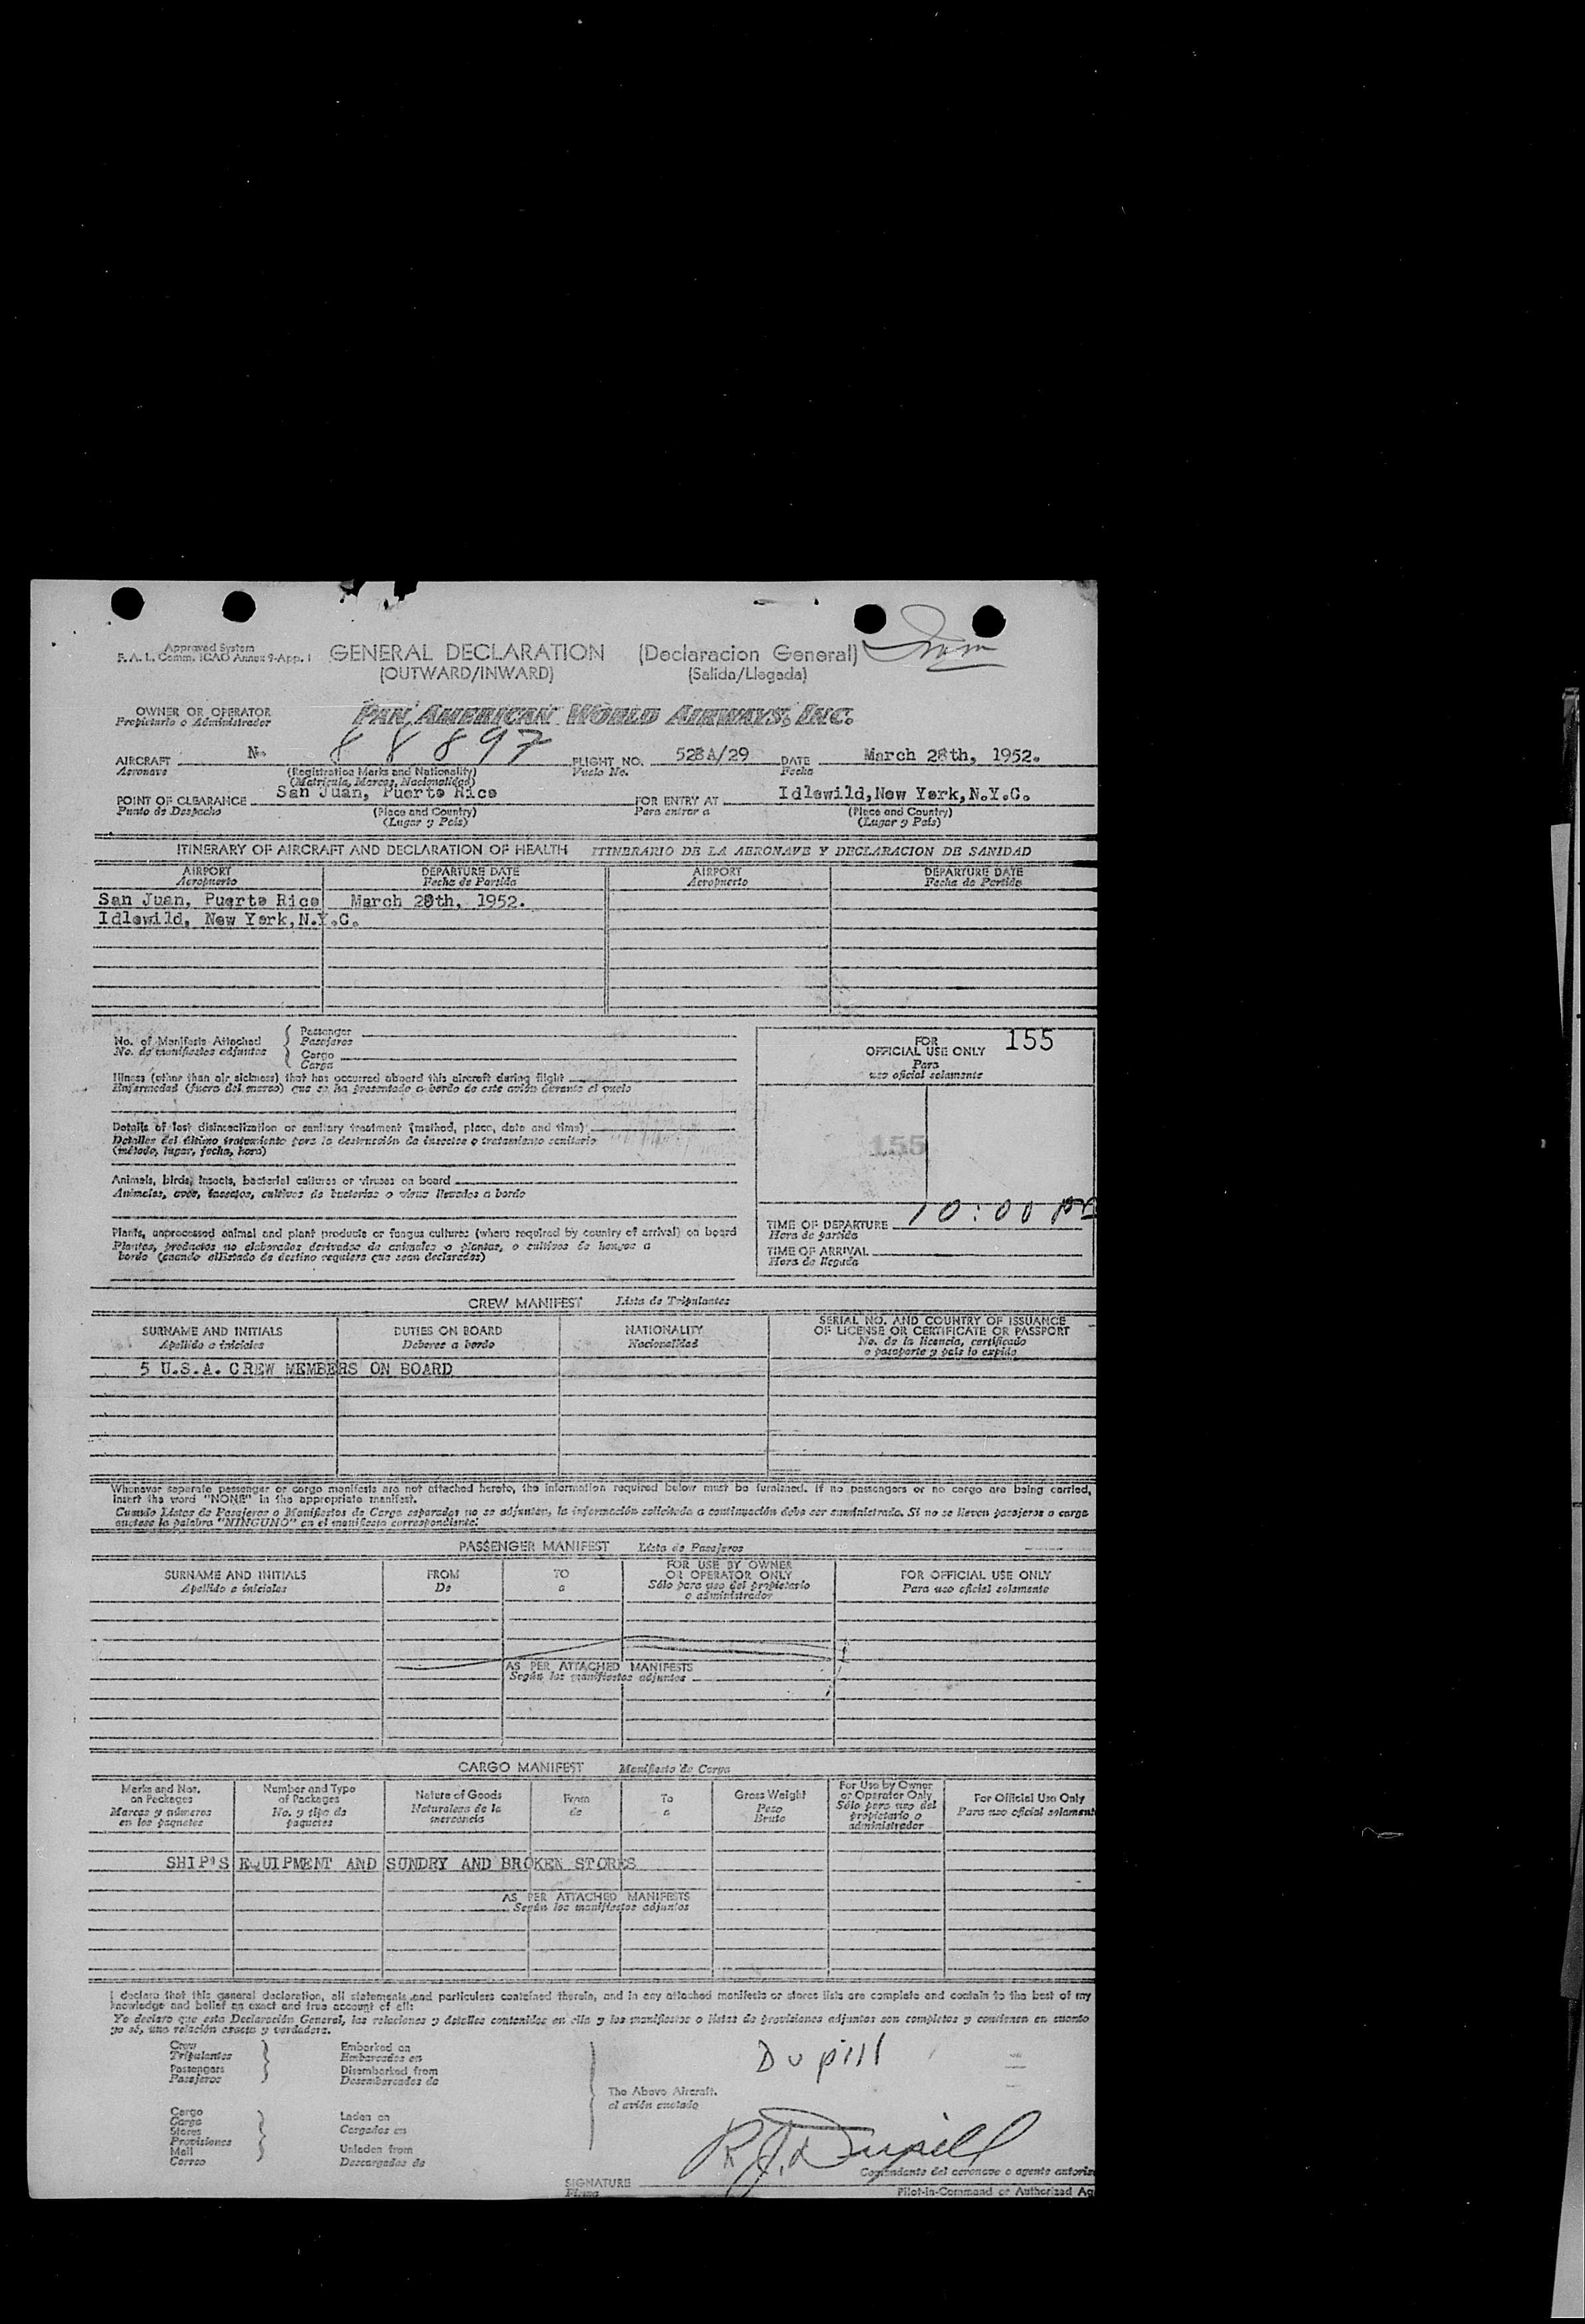 Approved System
F.A.L. Comm. ICAO Annex 9-App. 1
GENERAL DECLARATION (Declaracion General)
(OUTWARD/INWARD) (Salida/Llegada)
OWNER OR OPERATOR PAN AMERICAN WORLD AIRWAYS, INC.
Propietario o Administrador
AIRCRAFT N- 88897 FLIGHT NO. 528A/29 DATE March 28th, 1952.
Aeronave (Registration Marks and Nationality) Vuelo No. Fecha
(Matricula, Marcas, Nacionalidad)
POINT OF CLEARANCE San Juan, Puerto Rico FOR ENTRY AT Idlewild, New York, N.Y.C.
Punto de Despacho (Place and Country) Para entrar a (Place and Country)
(Lugar y Pais) (Lugar y Pais)
ITINERARY OF AIRCRAFT AND DECLARATION OF HEALTH ITINERARIO DE LA AERONAVE Y DECLARACION DE SANIDAD
AIRPORT DEPARTURE DATE AIRPORT DEPARTURE DATE
Aeropuerto Fecha de Partida Aeropuerto Fecha de Partida
San Juan, Puerto Rico March 28th, 1952.
Idlewild, New York, N.Y.C.
No. of Manifests Attached Passenger
No. de manifiestos adjuntos Pasajeros
Cargo
Carga
Illness (other than air sickness) that has occurred aboard this aircraft during flight
Enfermedad (fuera del mareo) que se ha presentado a bordo de este avión durante el vuelo
Details of last disinsectization or sanitary treatment (method, place, date and time)
Detalles del último tratamiento para la destrucción de insectos o tratamiento sanitario
(método, lugar, fecha, hora)
Animals, birds, insects, bacterial cultures or viruses on board
Animales, aves, insectos, cultivos de bacterias o virus llevados a bordo
Plants, unprocessed animal and plant products or fungus cultures (where required by country of arrival) on board
Plantas, productos no elaborados derivados de animales o plantas, o cultivos de hongos a
bordo (cuando el Estado de destino requiere que sean declarados)
FOR 155
OFFICIAL USE ONLY
Para
uso oficial solamente
155
TIME OF DEPARTURE 10:00
Hora de partida
TIME OF ARRIVAL
Hora de llegada
CREW MANIFEST Lista de Tripulantes
SURNAME AND INITIALS DUTIES ON BOARD NATIONALITY SERIAL NO. AND COUNTRY OF ISSUANCE
OF LICENSE OR CERTIFICATE OR PASSPORT
Apellido e iniciales Deberes a bordo Nacionalidad No. de la licencia, certificado
o pasaporte y pais lo expido
5 U.S.A. CREW MEMBERS ON BOARD
Whenever separate passenger or cargo manifests are not attached hereto, the information required below must be furnished. If no passengers or no cargo are being carried,
insert the word "NONE" in the appropriate manifest.
Cuando Listas de Pasajeros o Manifiestos de Carga separados no se adjunten, la información solicitada a continuación debe ser suministrada. Si no se lleven pasajeros o carga
anótese la palabra "NINGUNO" en el manifiesto correspondiente.
PASSENGER MANIFEST Lista de Pasajeros
SURNAME AND INITIALS FROM TO FOR USE BY OWNER
OR OPERATOR ONLY FOR OFFICIAL USE ONLY
Apellido e iniciales De a Sólo para uso del propietario
o administrador Para uso oficial solamente
AS PER ATTACHED MANIFESTS
Según los manifiestos adjuntos
CARGO MANIFEST Manifiesto de Carga
Marks and Nos.
on Packages
Marcas y números
en los paquetes
Number and Type
of Packages
No. y tipo de
paquetes
Nature of Goods
Naturaleza de la
mercancia
From
de
To
a
Gross Weight
Peso
Bruto
For Use by Owner
or Operator Only
Sólo para uso del
propietario o
administrador
For Official Use Only
Para uso oficial solament
SHIP'S EQUIPMENT AND SUNDRY AND BROKEN STORES
AS PER ATTACHED MANIFESTS
Según los manifiestos adjuntos
I declare that this general declaration, all statements and particulars contained therein, and in any attached manifests or stores lists are complete and contain to the best of my
knowledge and belief an exact and true account of all:
Yo declaro que esta Declaración General, las relaciones y detalles contenidos en ella y los manifiestos o listas de provisiones adjuntos son completos y contienen en cuanto
yo sé, una relación exacta y verdadera.
Crew
Tripulantes
Passengers
Pasajeros
Embarked on
Embarcados en
Disembarked from
Desembarcados de
Cargo
Carga
Stores
Provisiones
Mail
Correo
Laden on
Cargados en
Unladen from
Descargados de
The Above Aircraft.
el avión anotado
Dupill
R.J. Dupill
Comandante del aeronave o agente autoriz
SIGNATURE
Firma
Pilot-in-Command or Authorized Ag